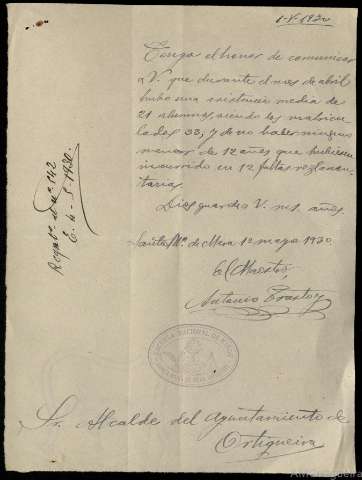 1-V-1930
Tengo el honor de comunicar
a V. que durante el mes de abril
hubo una asistencia media de
21 alumnos siendo los matricu-
lados 33, y de no haber ninguno
menor de 12 años que hubiese
incurrido en 12 faltas reglamen-
tarias.
Dios guarde a V. m. s. años.
Santa Mª. de Mera 1º mayo 1930.
El Maestro,
Antonio
Regdº. al nº. 142
E. 4-5-1930.
ESCUELA NACIONAL DE NIÑOS
Sr. Alcalde del Ayuntamiento de
Ortigueira